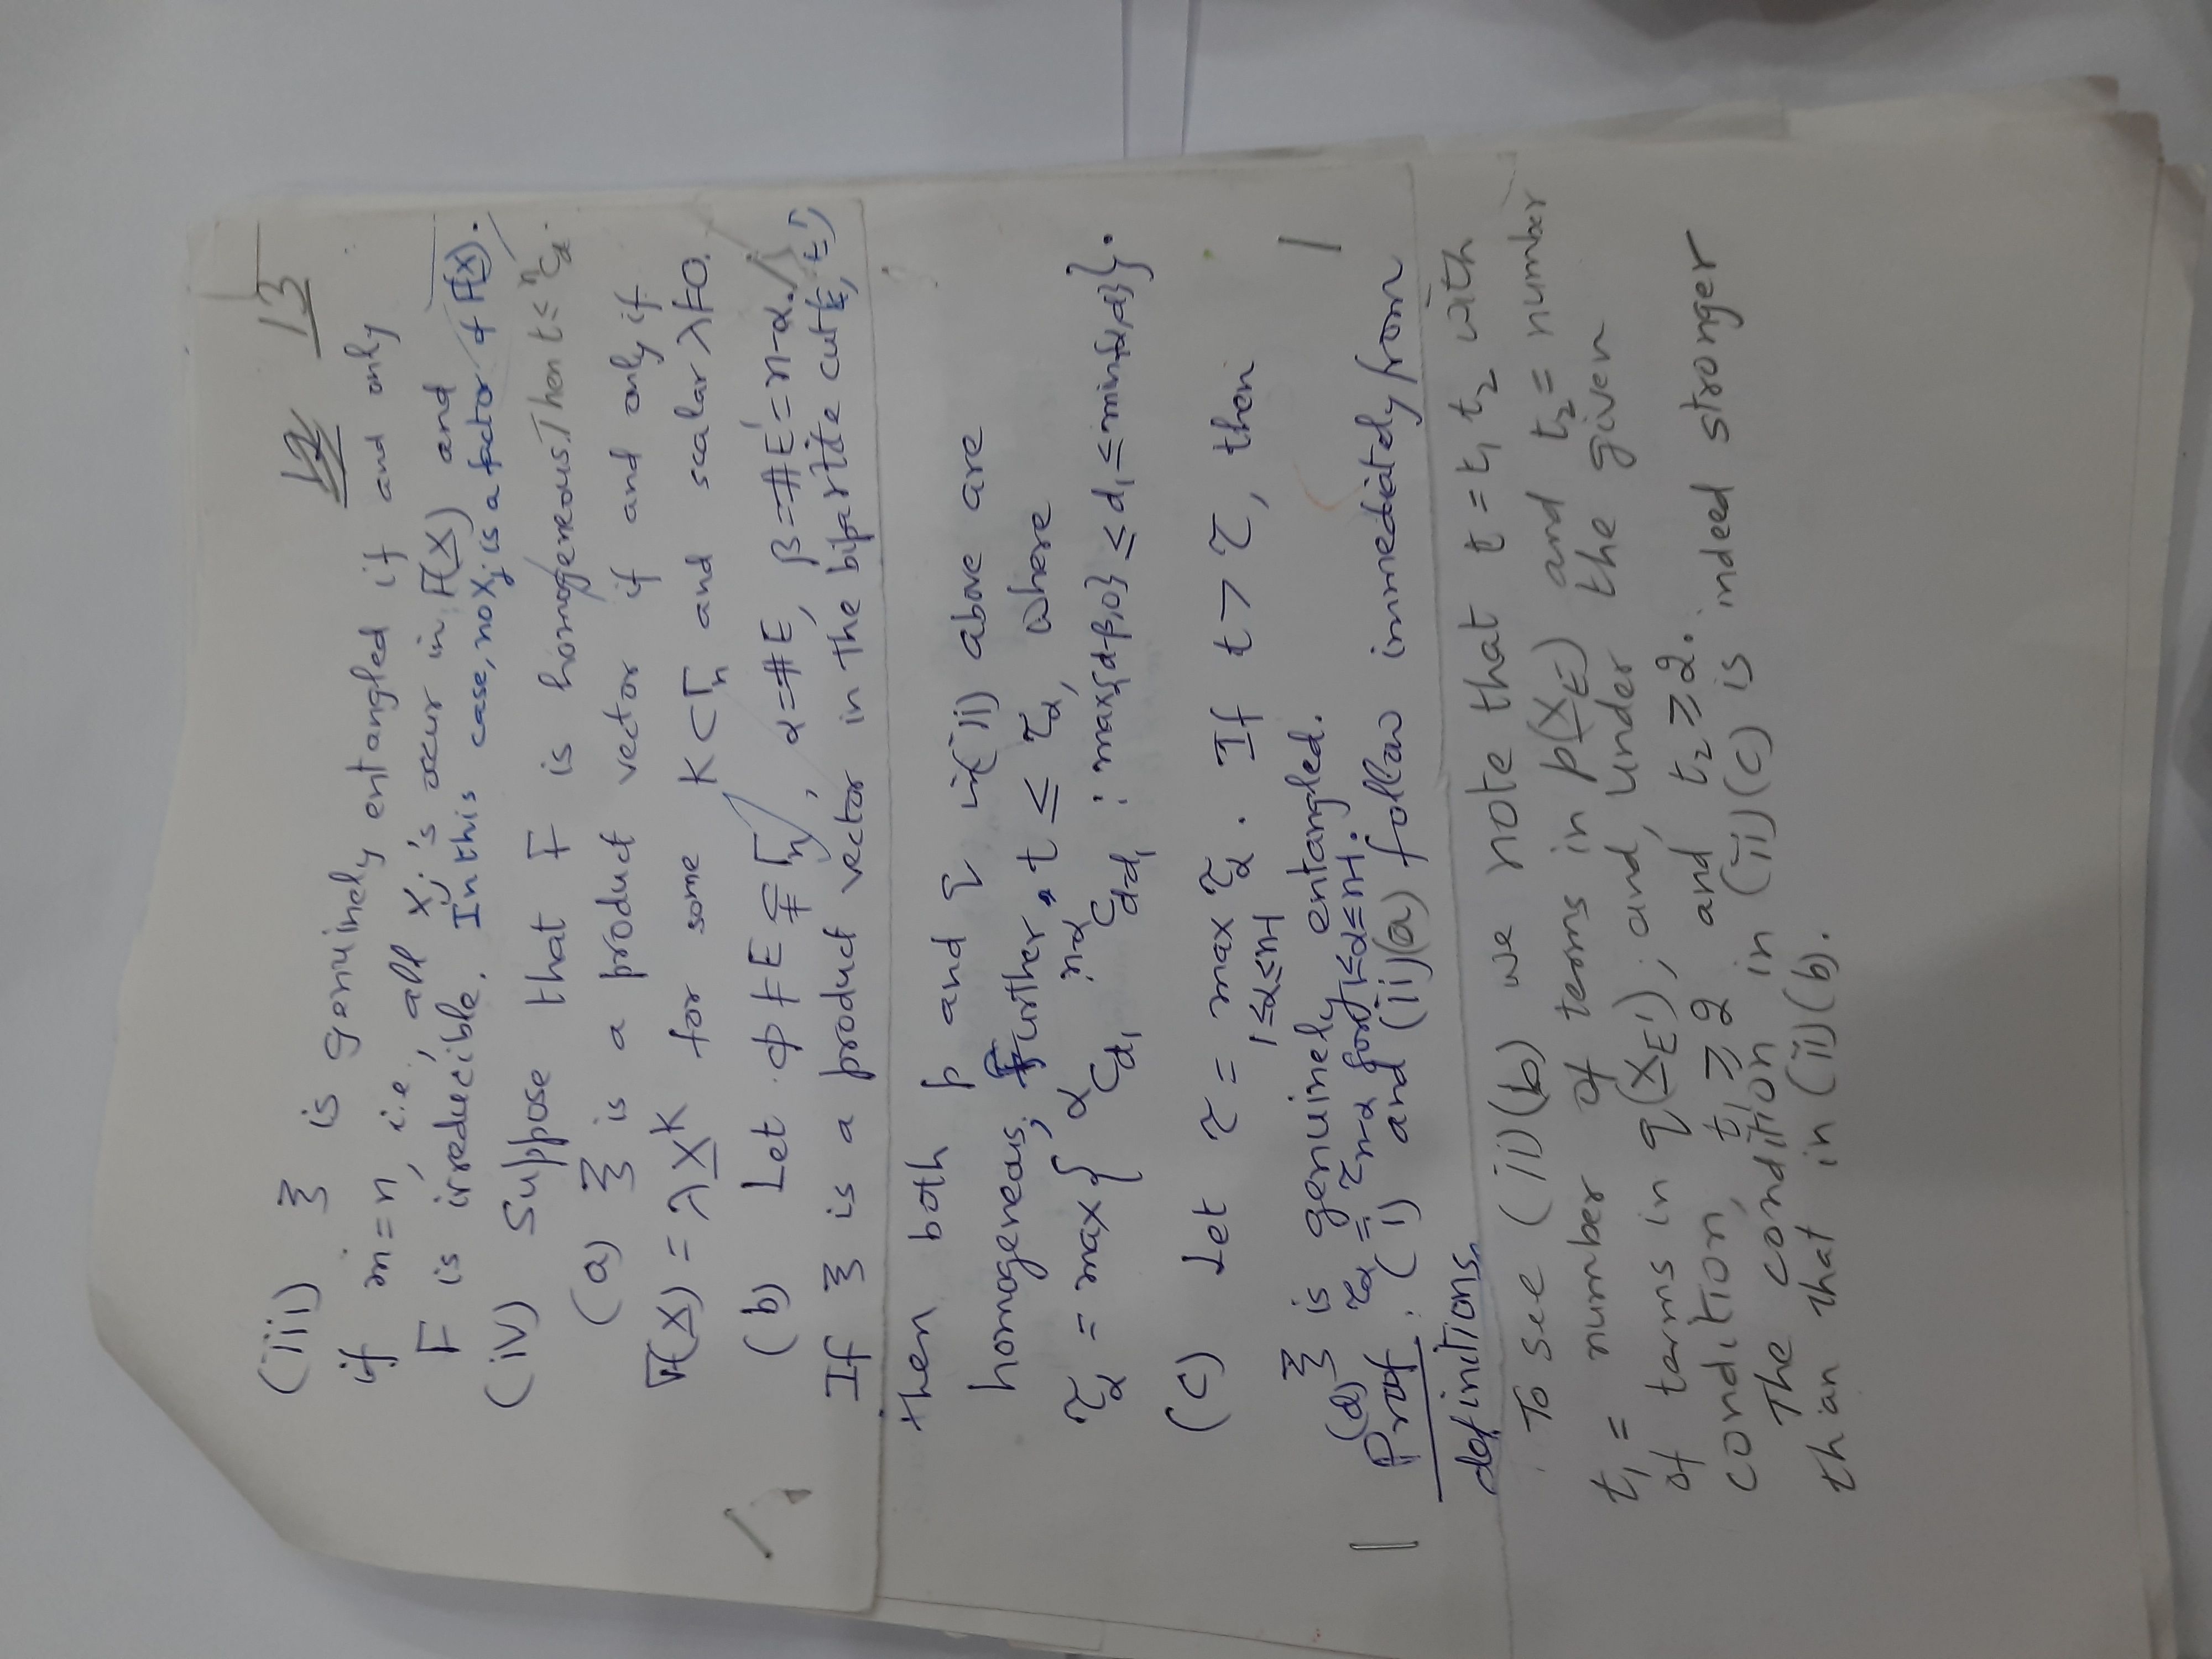 12 13
(iii) ξ is genuinely entangled if and only
if m=n, i.e., all Xj's occur in F(X) and
F is irreducible. In this case, no Xj is a factor of F(X).
(iv) Suppose that F is homogeneous. Then t ≤ ⁿC_d.
(a) ξ is a product vector if and only if
F(X) = λX^K for some K⊂Γn and scalar λ≠0.
(b) Let φ≠E⊊Γn, α=#E, β=#E'=n-α.
If ξ is a product vector in the bipartite cut (E, E')
then both p and q in (ii) above are
homogeneous; Further, t ≤ τ_α, where
τ_α = max{ ^αC_{d₁} ^{n-α}C_{d-d₁} : max{d-β,0} ≤ d₁ ≤ min{α,d}}.
(c) Let τ = max τ_α. If t > τ, then
1≤α≤n-1
ξ is genuinely entangled.
(d) τ_α = τ_{n-α} for 1≤α≤n-1.
Proof. (i) and (ii)(a) follow immediately from
definitions.
To see (ii)(b) we note that t = t₁ t₂ with
t₁ = number of terms in p(X_E) and t₂ = number
of terms in q(X_E'); and, under the given
condition, t₁ ≥ 2 and t₂ ≥ 2.
The condition in (ii)(c) is indeed stronger
than that in (ii)(b).